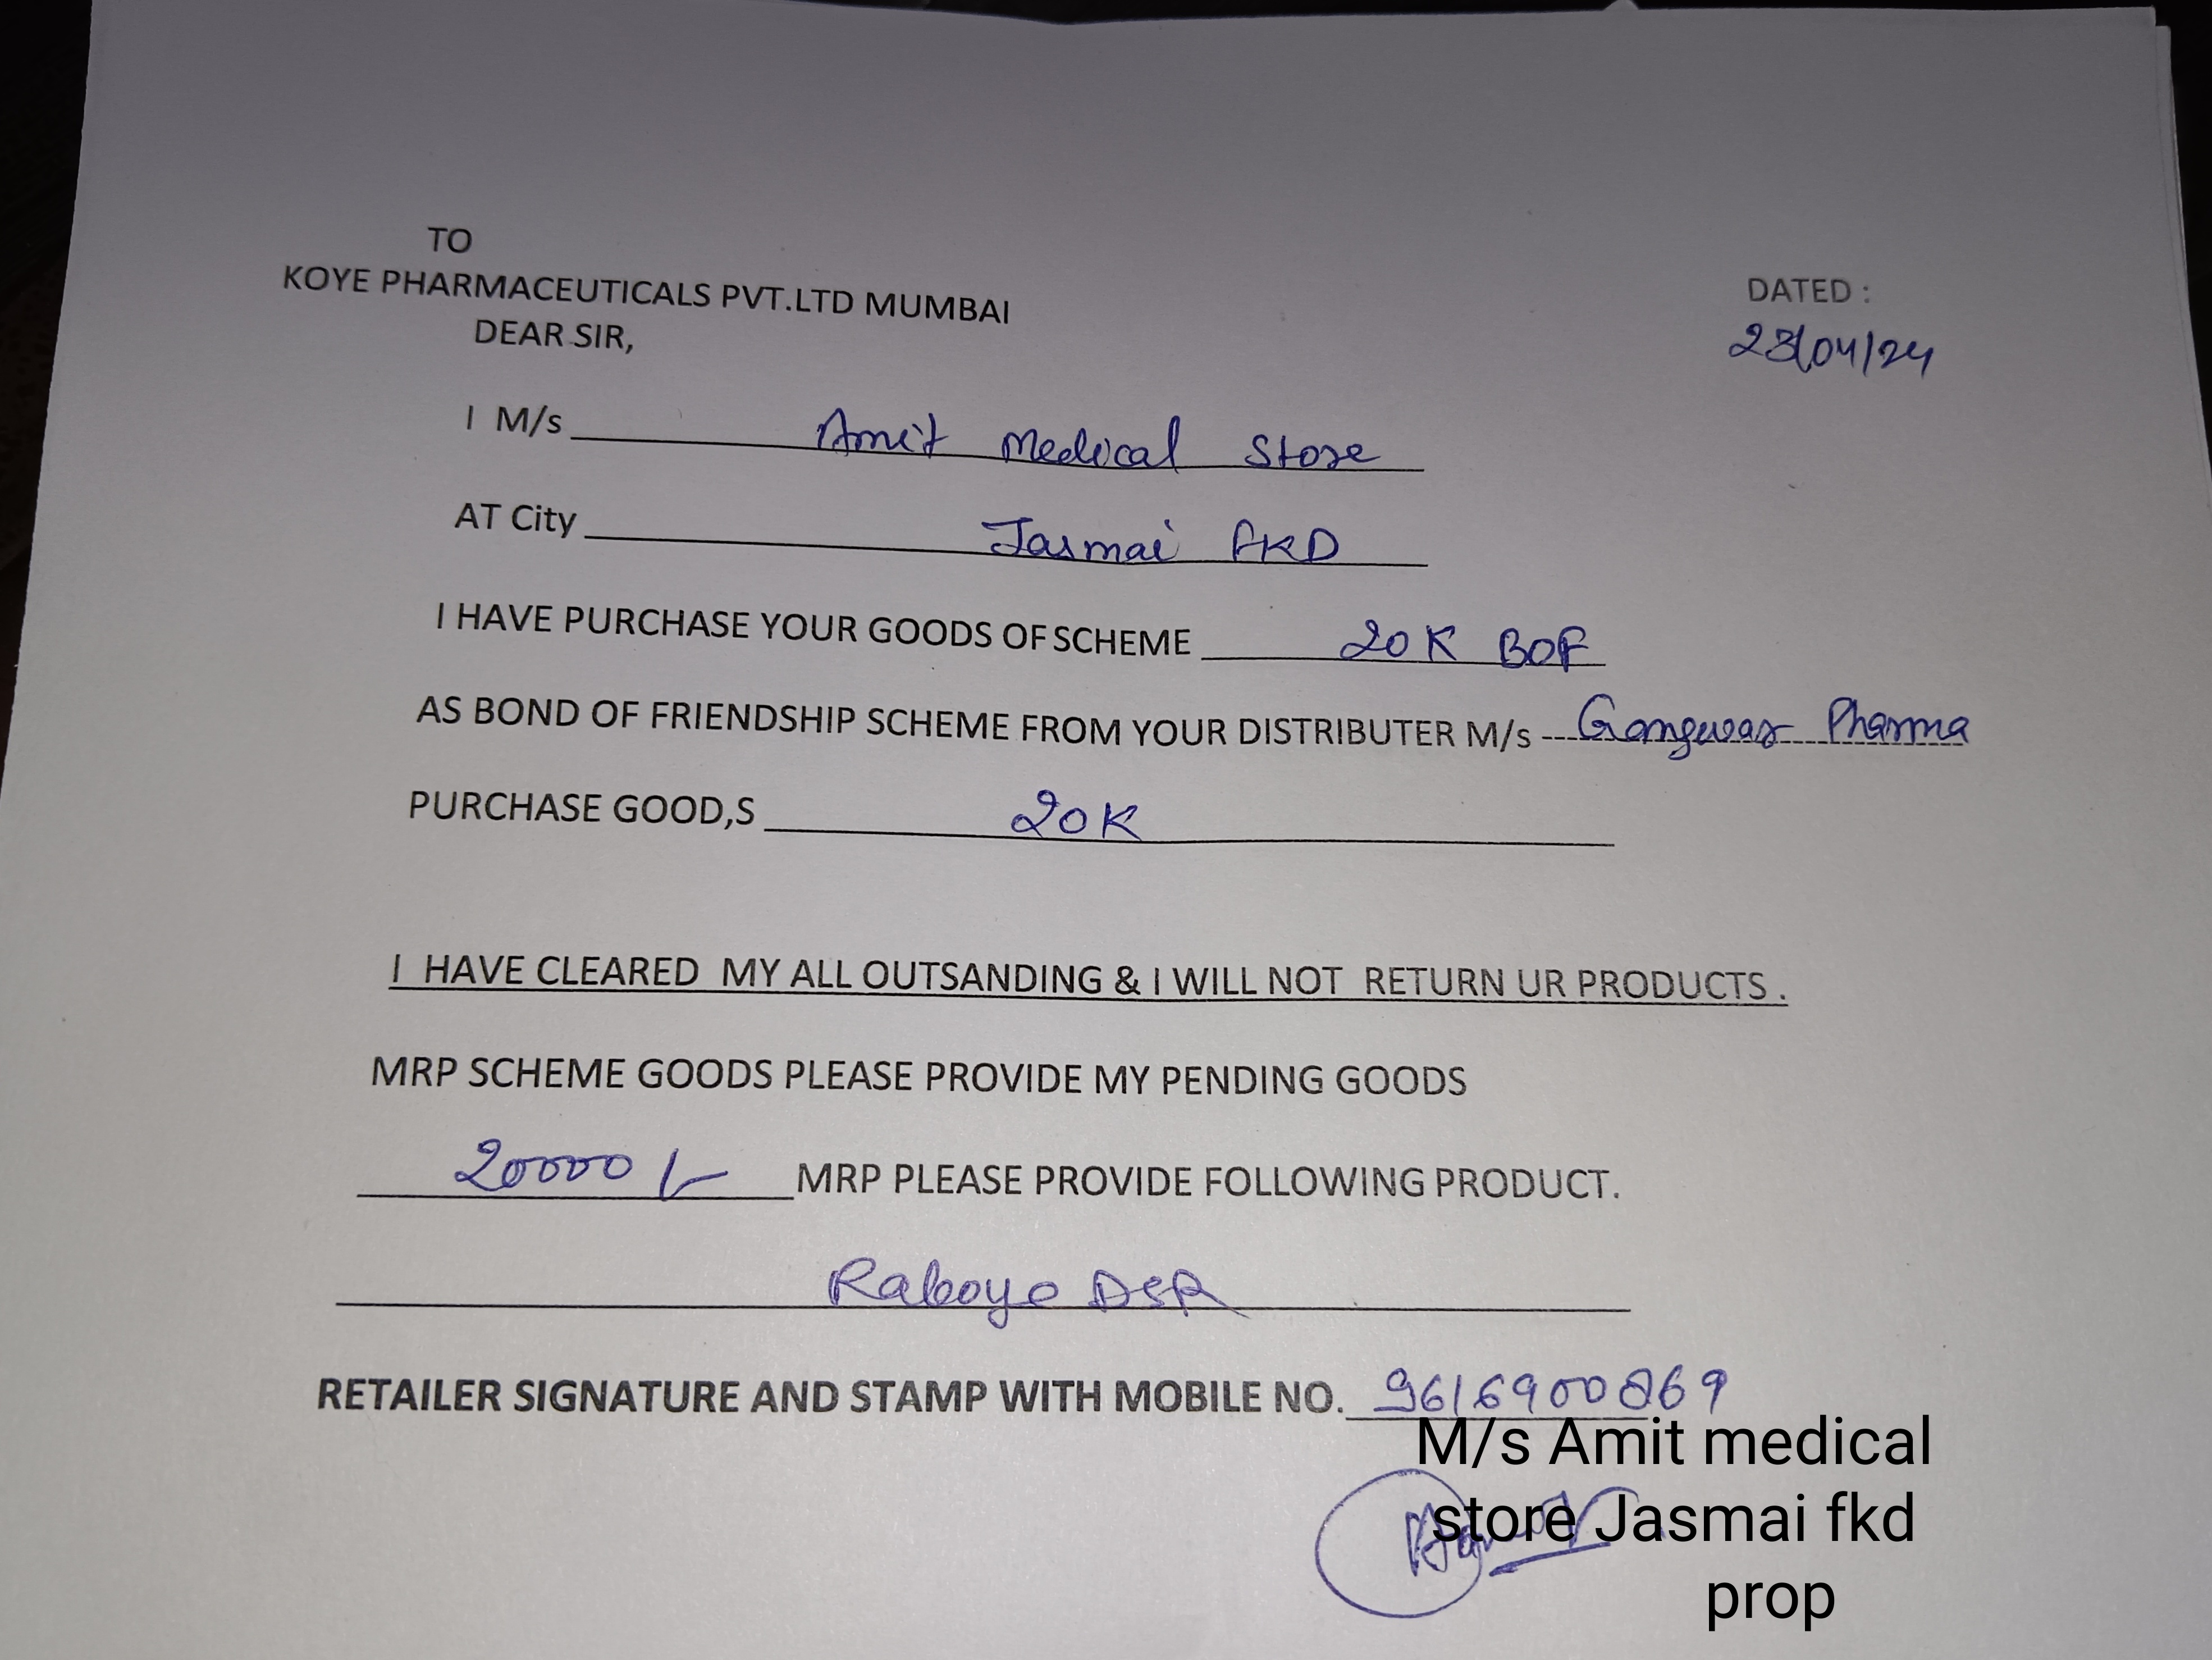 TO
KOYE PHARMACEUTICALS PVT.LTD MUMBAI
DATED :
DEAR SIR,
23/04/24
I M/s Amit Medical Store
AT City Jasmai FKD
I HAVE PURCHASE YOUR GOODS OF SCHEME 20K BOF
AS BOND OF FRIENDSHIP SCHEME FROM YOUR DISTRIBUTER M/s Gangwar Pharma
PURCHASE GOOD,S 20K
I HAVE CLEARED MY ALL OUTSANDING & I WILL NOT RETURN UR PRODUCTS .
MRP SCHEME GOODS PLEASE PROVIDE MY PENDING GOODS
20000/- MRP PLEASE PROVIDE FOLLOWING PRODUCT.
Raboye DSR
RETAILER SIGNATURE AND STAMP WITH MOBILE NO. 9616900869
M/s Amit medical
store Jasmai fkd
prop